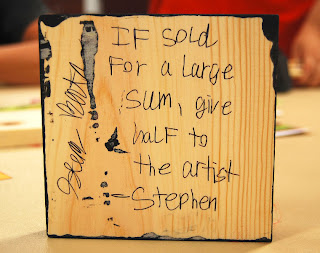 IF SOLD
For a large
SUM, give
half to
the artist
-Stephen